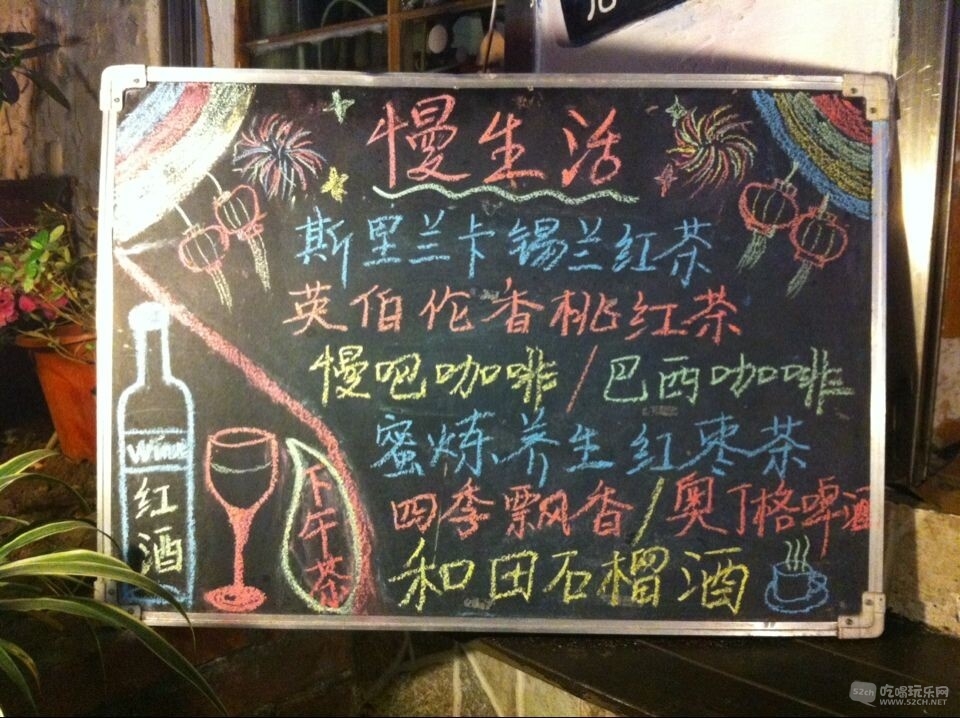 慢生活
斯里兰卡锡兰红茶
英伯伦香桃红茶
慢吧咖啡/巴西咖啡
蜜炼养生红枣茶
四季飘香/奥丁格啤酒
和田石榴酒
Wine
红酒
下午茶
吃喝玩乐网
52ch
WWW.52CH.NET